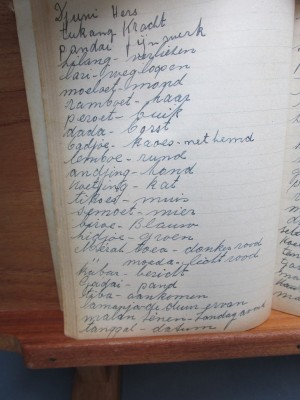 Djuni Hers
tukang Kracht
pandai fijnwerk
hilang - verliezen
lari - wegloopen
moeloet - mond
ramboet - haar
peroet - buik
dada - borst
badjoe - kaoes - net hemd
lemboe - rund
andjing - hond
koetjing - kat
tikoes - muis
semoet - mier
biroe - Blauw
hidjoe - groen
Merah toea - donker rood
" moeda - licht rood
Kabar - bericht
Gadai - pand
tiba - aankomen
lamanja - de duur ervan
malam Senen - Zondag avond
tanggal - datum